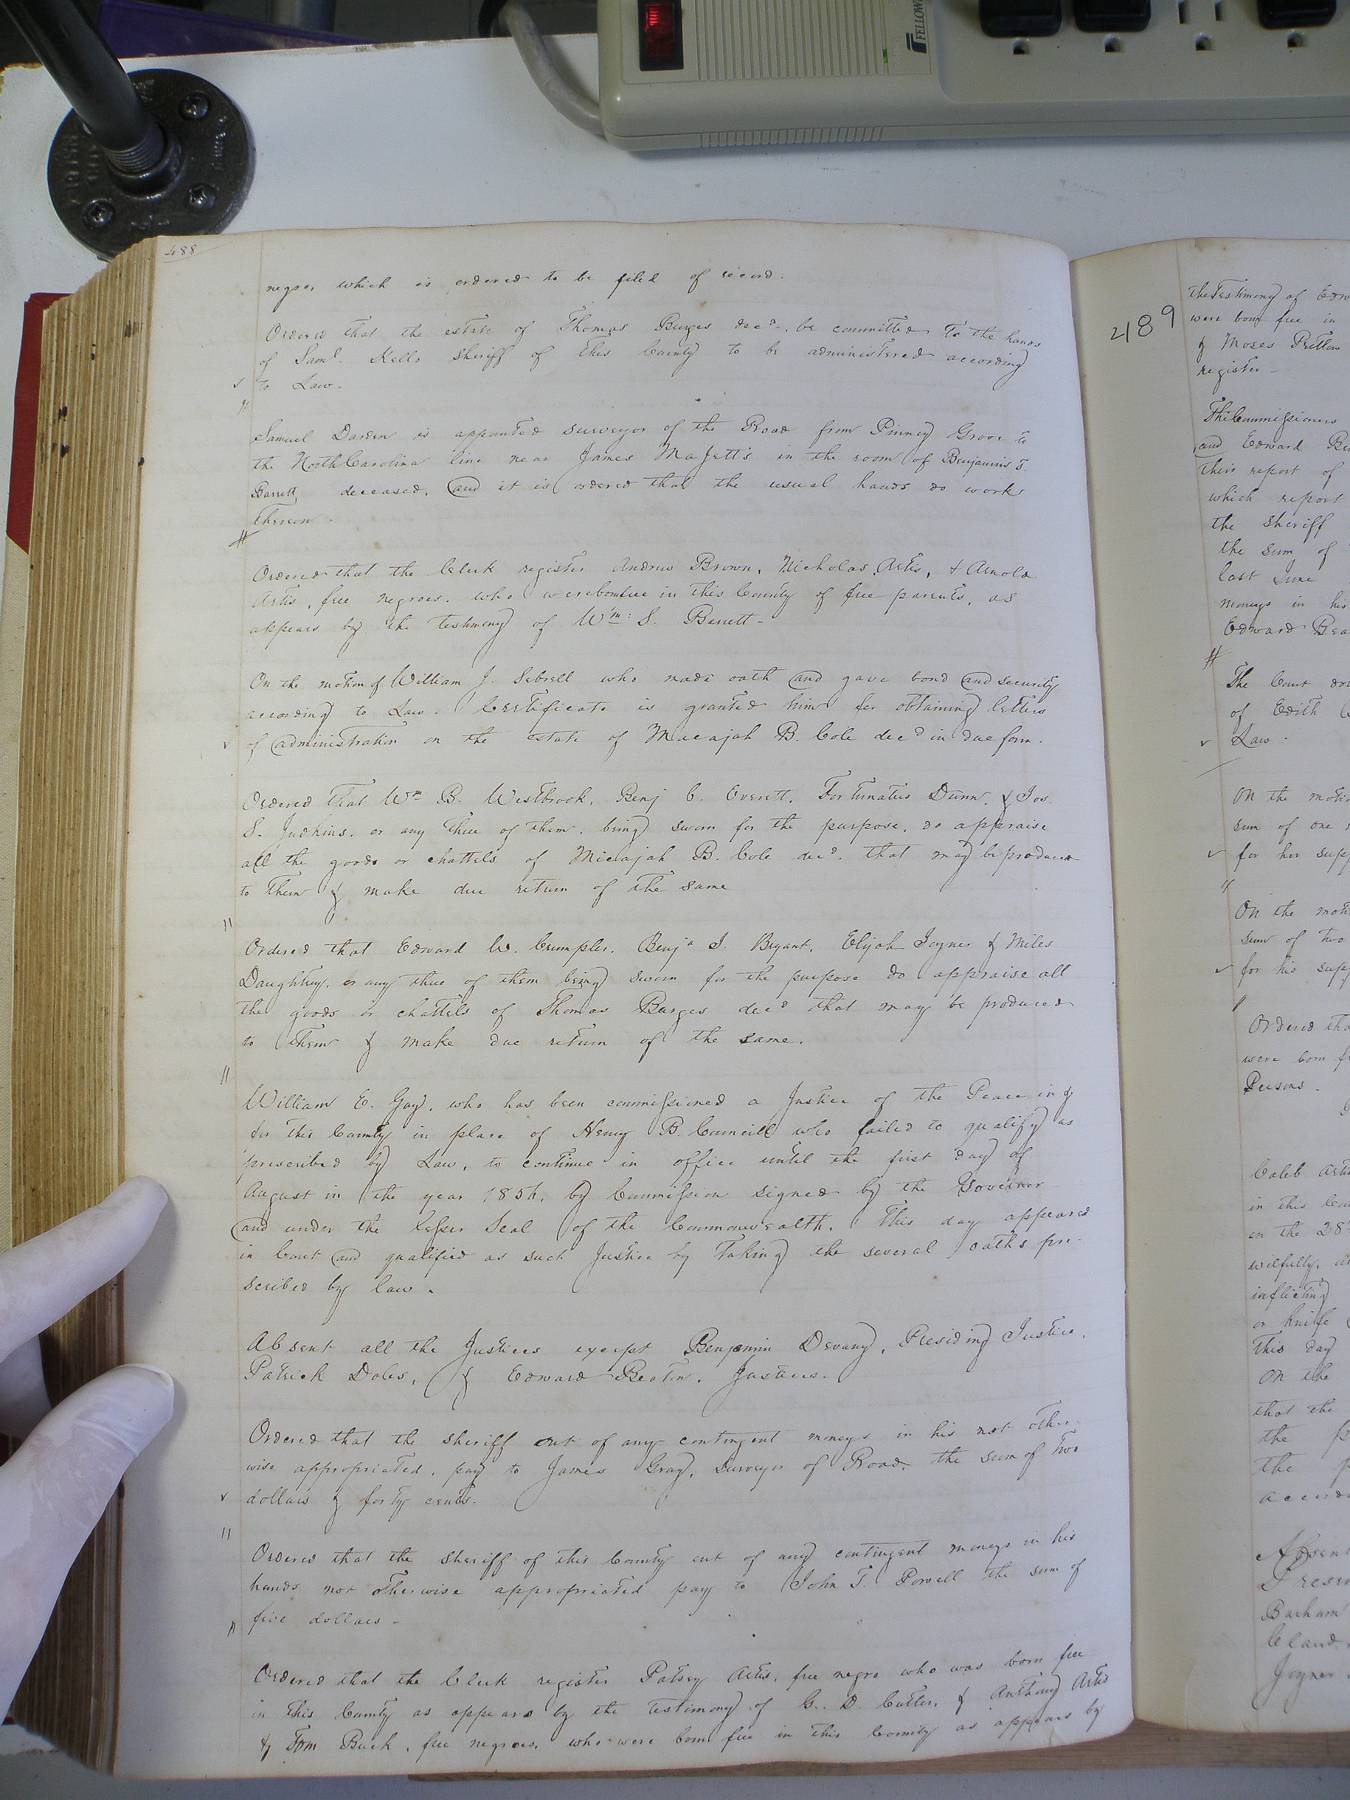 488
negroes which is ordered to be filed of record.
Ordered that the estate of Thomas Burges decd. be committed to the hands
of Saml. Kello Sheriff of this County to be administered according
to Law.
Samuel Darden is appointed surveyor of the Road from Pinney Grove to
the North Carolina line near James Majett's in the room of Benjamin T.
Barrett, deceased, and it is ordered that the usual hands do work
thereon.
Ordered that the Clerk register Andrew Brown, Nicholas Artis, & Arnold
Artis, free negroes, who were born free in this County of free parents, as
appears by the testimony of Wm. S. Barrett
On the motion of William J. Sebrell who made oath and gave bond and security
according to Law. Certificate is granted him for obtaining letters
of administration on the estate of Micajah B. Cole decd in due form.
Ordered that Wm B. Westbrook, Benj C. Everett, Fortunatus Dunn, & Jos.
S. Judkins, or any three of them, being sworn for the purpose, do appraise
all the goods or chattels of Micajah B. Cole decd. that may be produced
to them & make due return of the same
Ordered that Edward W. Crumpler, Benja J. Bryant, Elijah Joyner & Miles
Daughtrey, or any three of them being sworn for the purpose do appraise all
the goods or chattels of Thomas Burges decd that may be produced
to them & make due return of the same.
William E. Gay, who has been commissioned a Justice of the Peace in &
for this County in place of Henry B. Councill who failed to qualify as
prescribed by Law, to continue in office until the first day of
August in the year 1856, by Commission signed by the Governor
and under the Lesser Seal of the Commonwealth. This day appeared
in Court and qualified as such Justice by taking the several oaths pre-
scribed by law.
Absent all the Justices except Benjamin Devany, Presiding Justice,
Patrick Doles, & Edward Beaton, Justices.
Ordered that the sheriff out of any contingent moneys in his not other-
wise appropriated, pay to James Gray, Surveyor of Road, the sum of two
dollars & forty cents.
Ordered that the Sheriff of this County out of any contingent moneys in his
hands not otherwise appropriated pay to John T. Powell the sum of
five dollars
Ordered that the Clerk register Patsey Artis, free negro who was born free
in this County as appears by the testimony of G. D. Cutler, & Anthony Artis
& Tom Buck, free negroes, who were born free in this County as appears by
489
the testimony of Edw
were born free in
& Moses Pretlow
register
The Commissioners
and Edward Be
their report of
which report
the sheriff
the sum of
last June
moneys in his
Edward Bea
The Court
of Edith
Law.
On the motio
sum of one
for her supp
On the mot
sum of two
for his supp
Ordered tha
were born f
Persons.
Caleb Artis
in this Cou
on the 28
wilfully,
inflicting
or knife
This day
On the
that the
the
the
Absent
Presi
Barham
Cland
Joyner
FELLOW